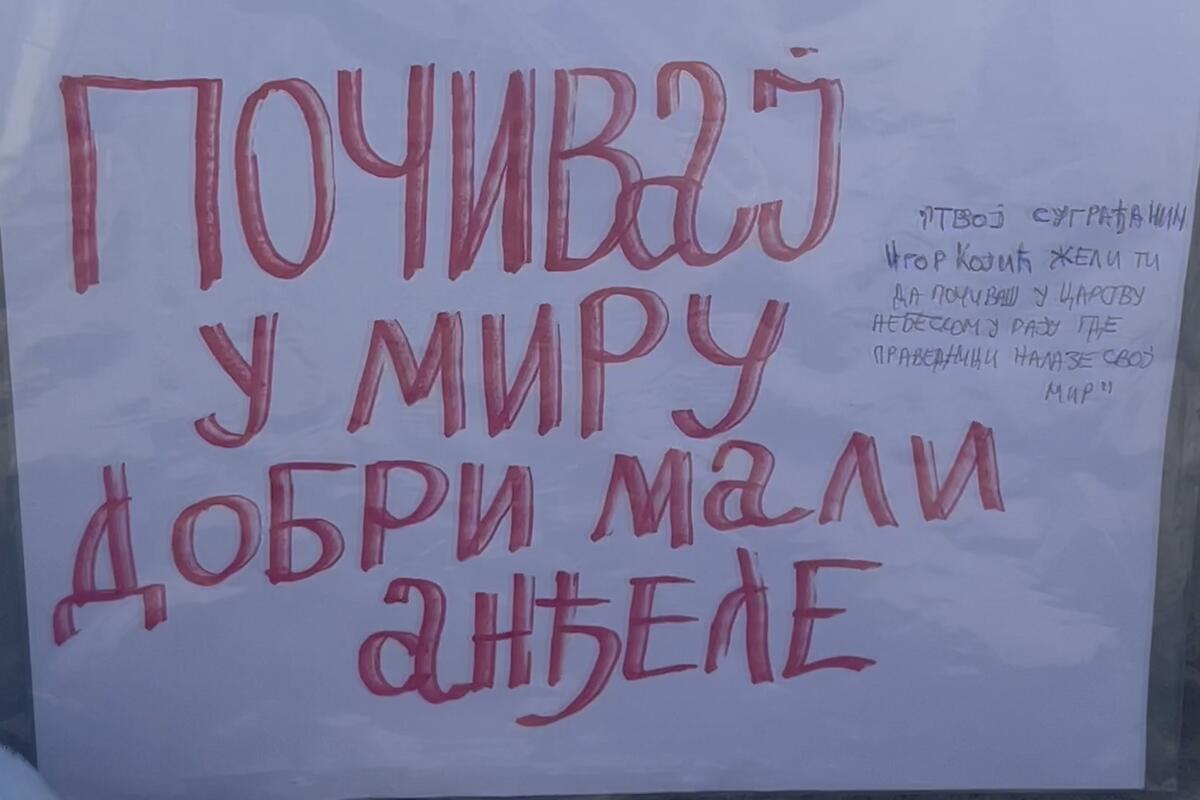 ПОЧИВај
У МИРУ
ДОБРИ МаЛИ
аНЂЕЛЕ
"ТВОЈ СУГРАЂАНИН
ИГОР КОЈИЋ ЖЕЛИ ТИ
ДА ПОЧИВАШ У ЦАРСТВУ
НЕБЕСКОМ У РАЈУ ГДЕ
ПРАВЕДНИЦИ НАЛАЗЕ СВОЈ
МИР"